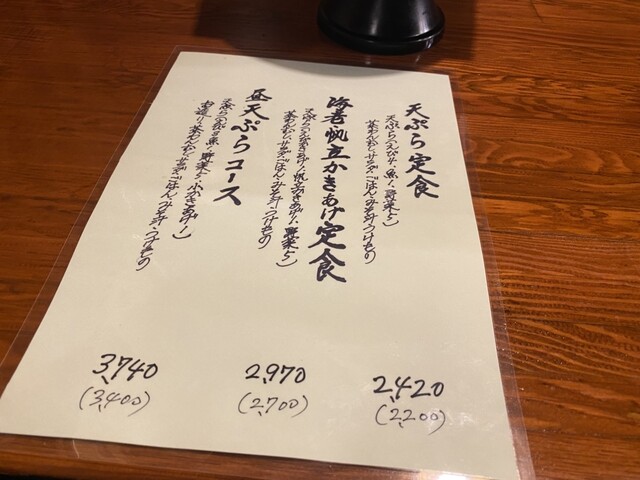 天ぷら定食
天ぷら(えび4、魚1、野菜5)
茶わんむし、サラダ、ごはん、みそ汁、つけもの
2,420
(2,200)
海老・帆立かきあげ定食
天ぷら(えびかきあげ1、帆立かきあげ1、野菜5)
茶わんむし、サラダ、ごはん、みそ汁、つけもの
2,970
(2,700)
昼天ぷらコース
お造り、茶わんむし、サラダ、ごはん、みそ汁、つけもの
3,740
(3,400)